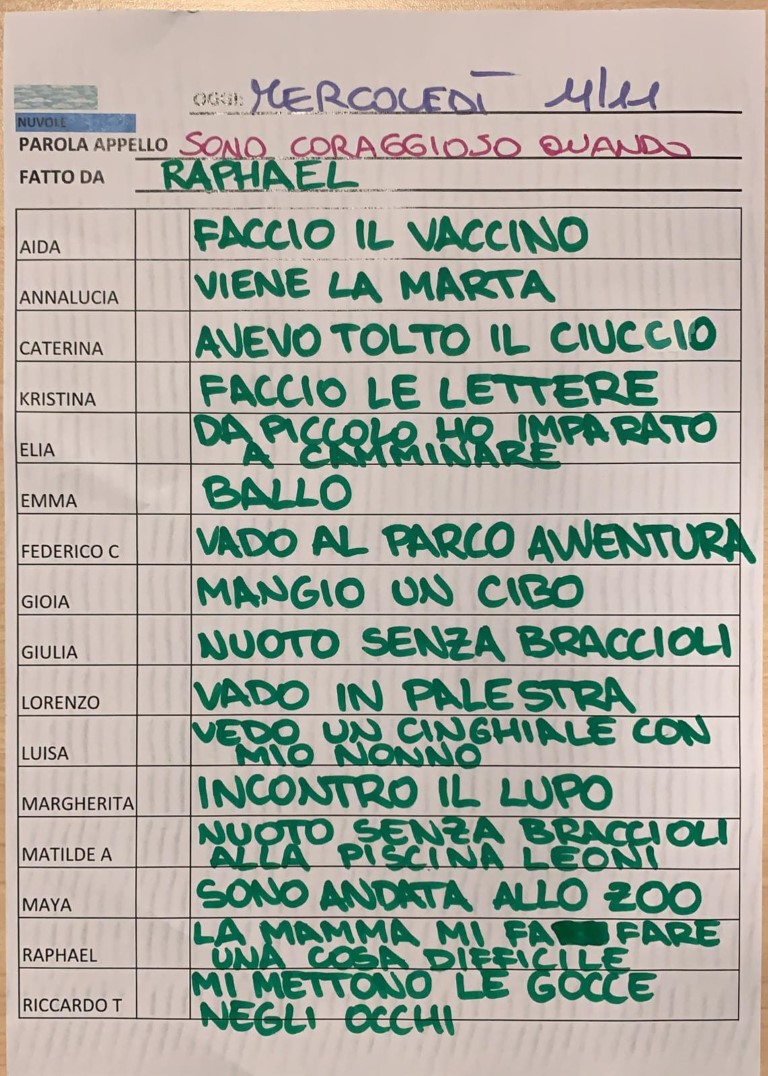 OGGI: MERCOLEDÌ 11/11
NUVOLE
PAROLA APPELLO SONO CORAGGIOSO QUANDO
FATTO DA RAPHAEL
AIDA FACCIO IL VACCINO
ANNALUCIA VIENE LA MARTA
CATERINA AVEVO TOLTO IL CIUCCIO
KRISTINA FACCIO LE LETTERE
ELIA DA PICCOLO HO IMPARATO
A CAMMINARE
EMMA BALLO
FEDERICO C VADO AL PARCO AVVENTURA
GIOIA MANGIO UN CIBO
GIULIA NUOTO SENZA BRACCIOLI
LORENZO VADO IN PALESTRA
LUISA VEDO UN CINGHIALE CON
MIO NONNO
MARGHERITA INCONTRO IL LUPO
MATILDE A NUOTO SENZA BRACCIOLI
ALLA PISCINA LEONI
MAYA SONO ANDATA ALLO ZOO
RAPHAEL LA MAMMA MI FA FARE
UNA COSA DIFFICILE
RICCARDO T MI METTONO LE GOCCE
NEGLI OCCHI